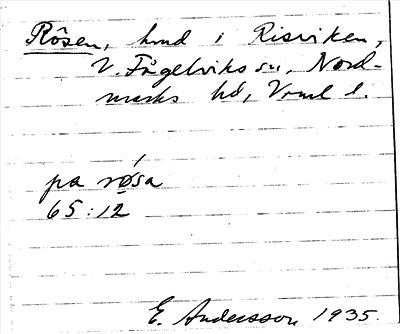 Rösen, hmd i Risviken,
V. Fågelviks sn, Nord-
marks hd, Vrml l.
pa røsa
65:12
E. Andersson 1935.